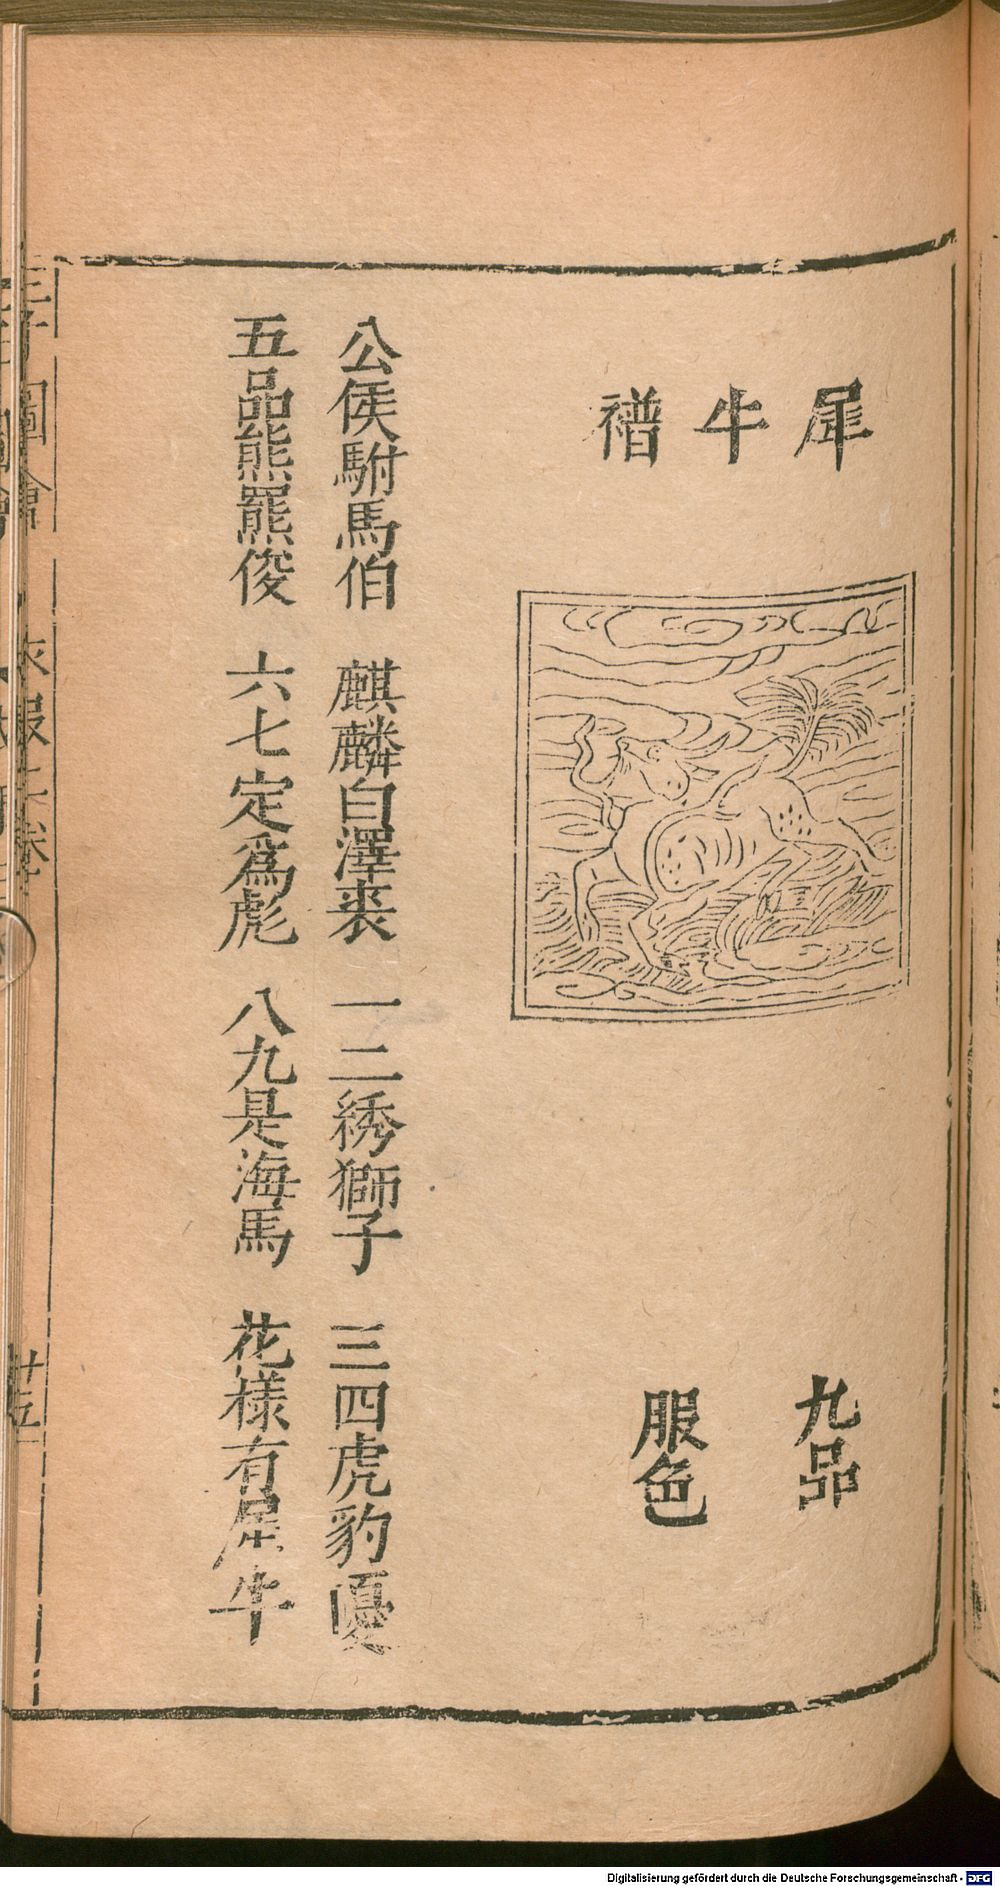 犀牛䙢
九品
服色
公侯駙馬伯　麒麟白澤裘　一二綉獅子　三四虎豹優
五品熊羆俊　六七定爲彪　八九是海馬　花樣有犀牛
圖會
衣服三卷
廿五
Digitalisierung gefördert durch die Deutsche Forschungsgemeinschaft - DFG